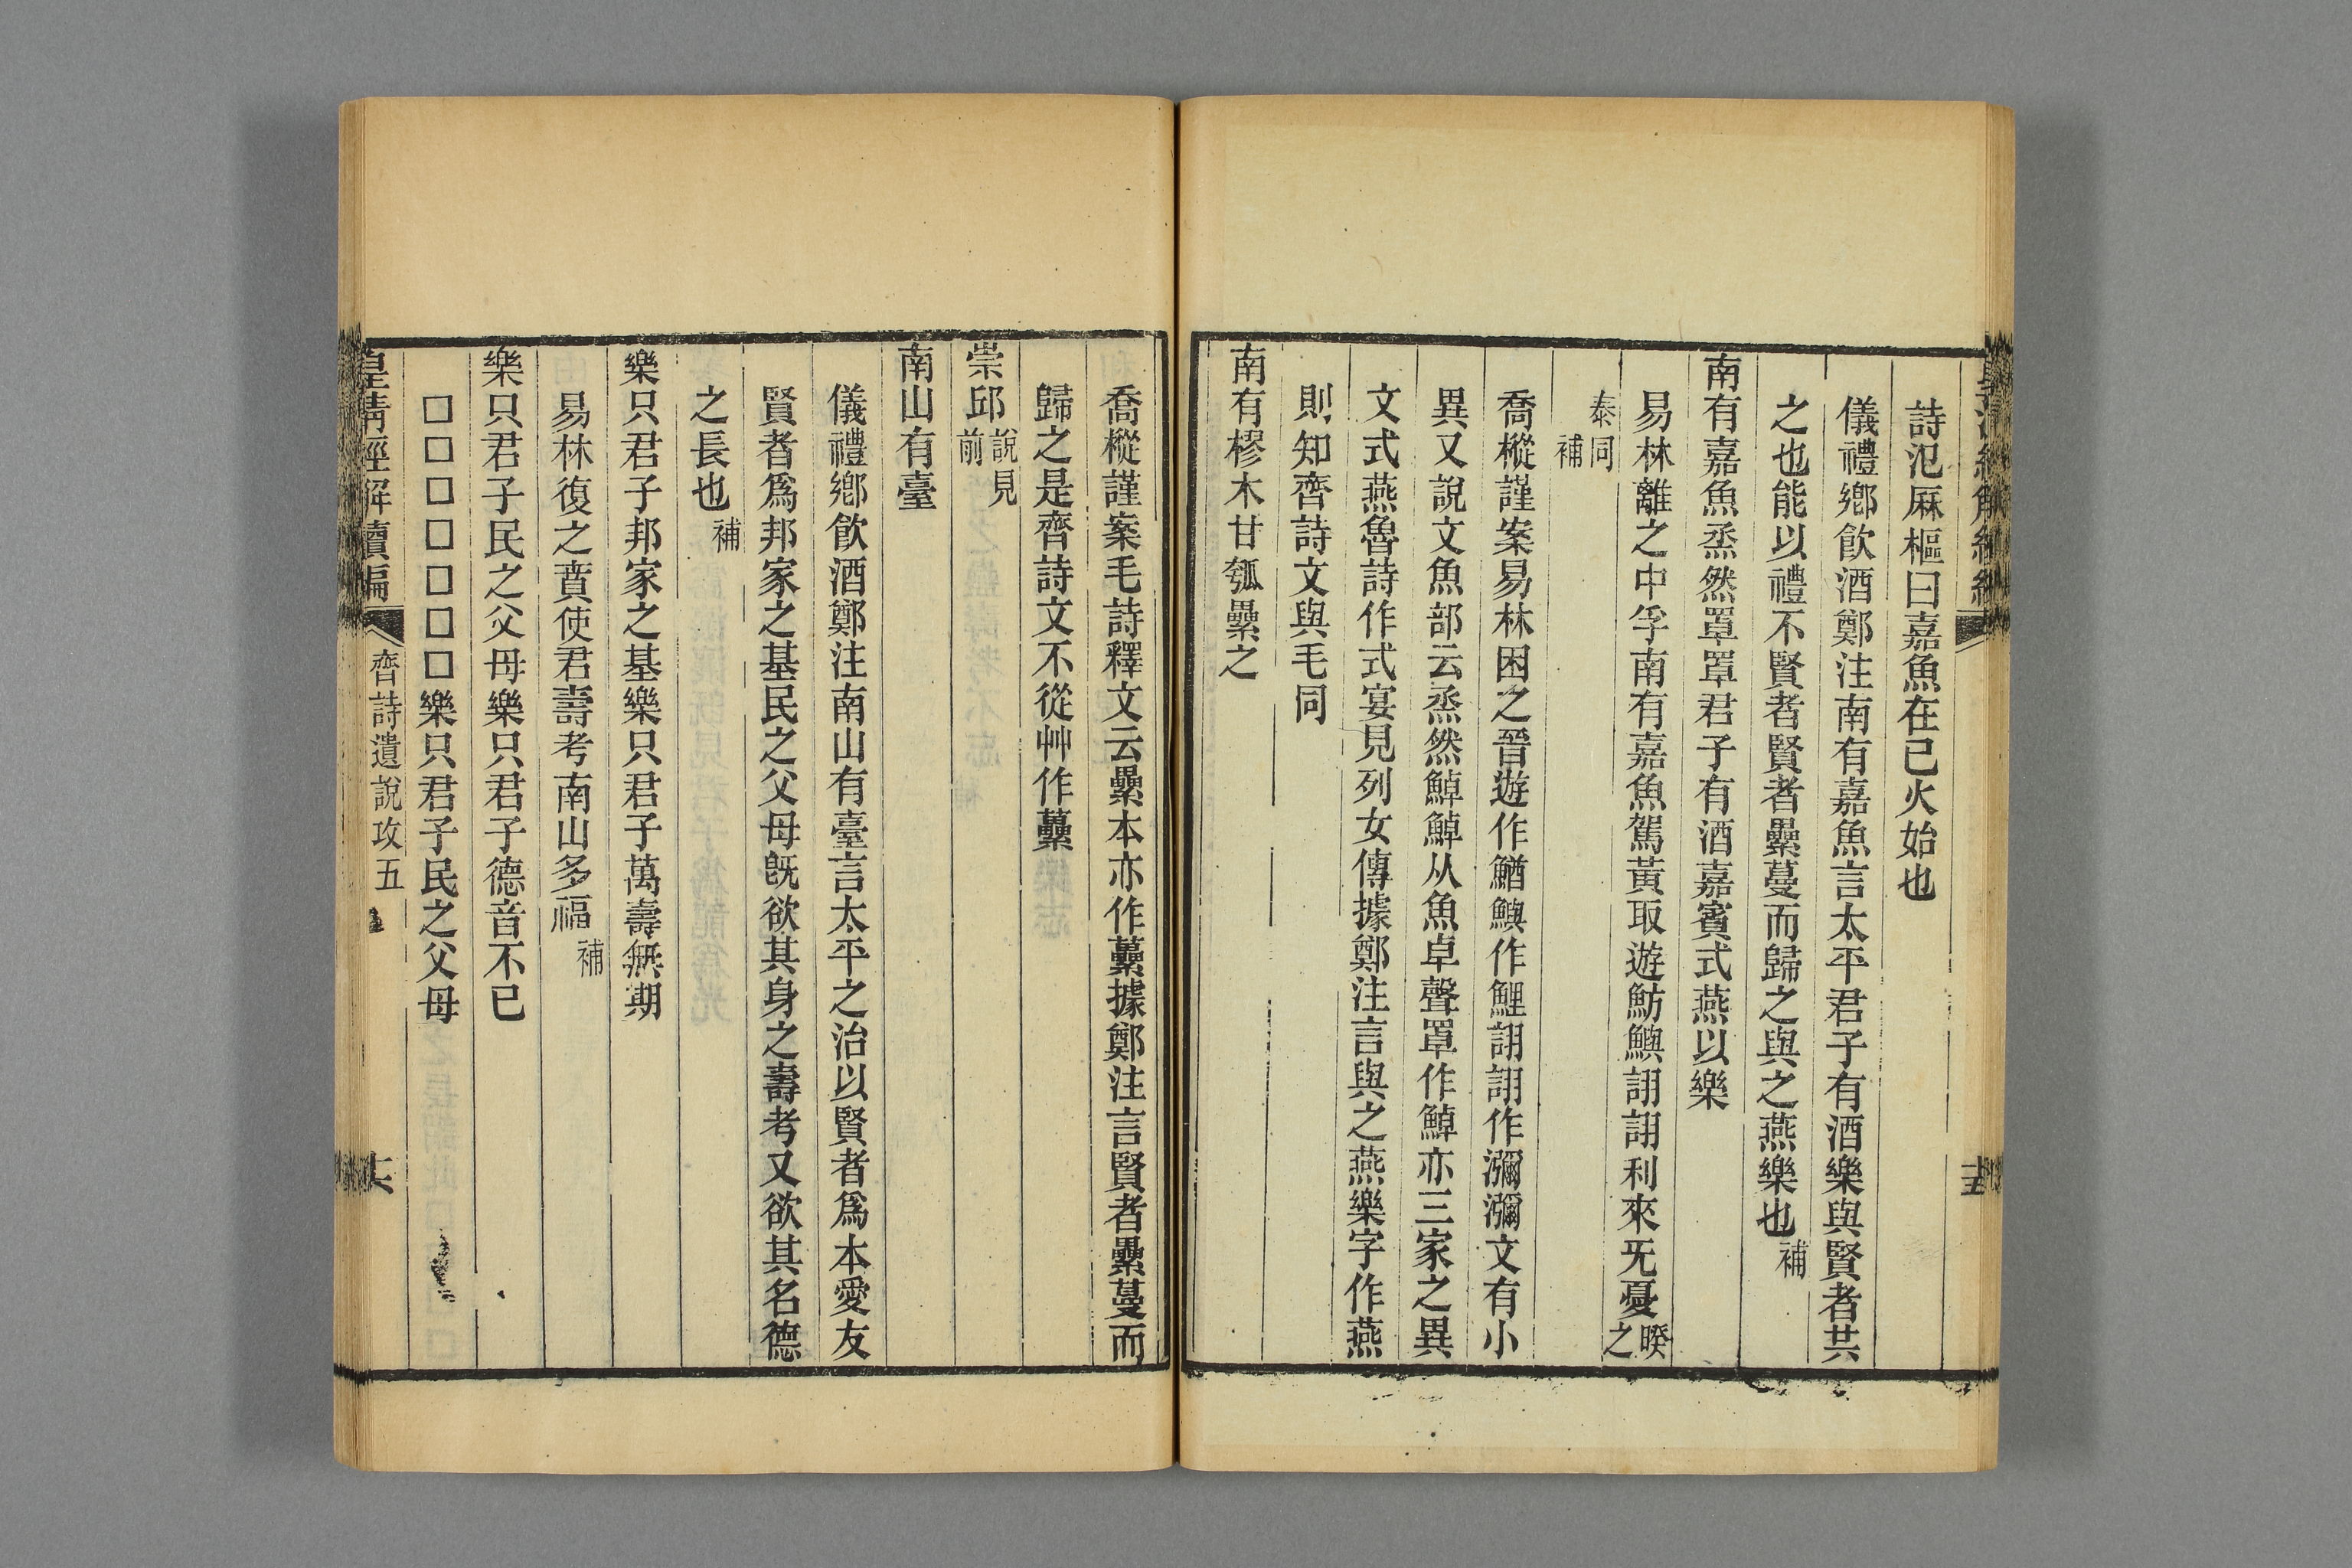 詩氾厤樞曰嘉魚在巳火始也
儀禮鄉飮酒鄭注南有嘉魚言太平君子有酒樂與賢者共
之也能以禮不賢者賢者纍蔓而歸之與之燕樂也補
南有嘉魚烝然罩罩君子有酒嘉賓式燕以樂
易林離之中孚南有嘉魚駕黃取遊魴鱮詡詡利來旡憂睽之
泰同補
喬樅謹案易林困之晉遊作鰌鱮作鯉詡詡作瀰瀰文有小
異又說文魚部云烝然鯙鯙从魚卓聲罩作鯙亦三家之異
文式燕魯詩作式宴見列女傳據鄭注言與之燕樂字作燕
則知齊詩文與毛同
南有樛木甘瓠纍之
喬樅謹案毛詩釋文云纍本亦作虆據鄭注言賢者纍蔓而
歸之是齊詩文不從艸作虆
崇邱說見前
南山有臺
儀禮鄉飮酒鄭注南山有臺言太平之治以賢者爲本愛友
賢者爲邦家之基民之父母旣欲其身之壽考又欲其名德
之長也補
樂只君子邦家之基樂只君子萬壽無期
易林復之賁使君壽考南山多福補
樂只君子民之父母樂只君子德音不已
□□□□□□□樂只君子民之父母
皇清經解續編 齊詩遺說攷五 六